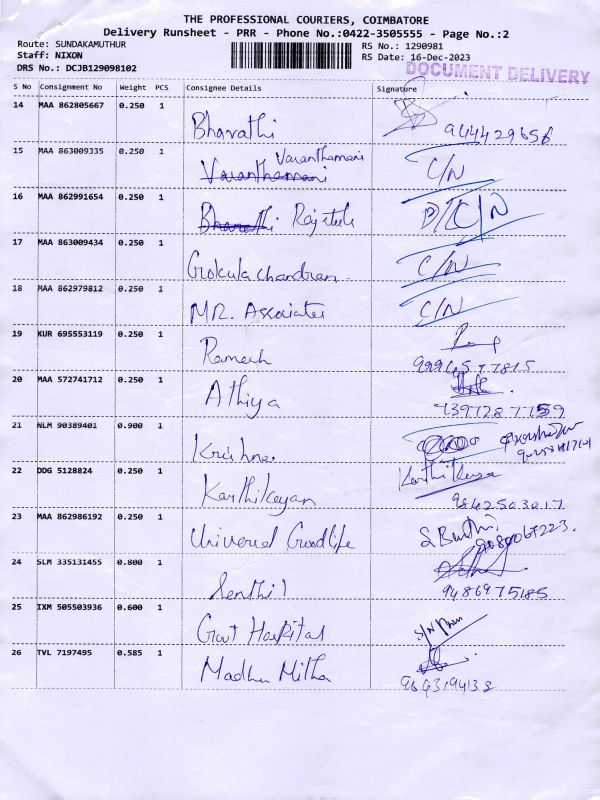 THE PROFESSIONAL COURIERS, COIMBATORE
Delivery Runsheet - PRR - Phone No.:0422-3505555 - Page No.:2
Route: SUNDAKAMUTHUR
Staff: NIXON
DRS No.: DCJB129098102
RS No.: 1290981
RS Date: 16-Dec-2023
DOCUMENT DELIVERY
S No Consignment No Weight PCS Consignee Details Signature
14 MAA 862805667 0.250 1
Bharathi 9444429656
15 MAA 863009335 0.250 1
Varanthamani
Varanthamani C/N
16 MAA 862991654 0.250 1
Bharathi D/C/N
17 MAA 863009434 0.250 1
Gokula chandran C/N
18 MAA 862979812 0.250 1
MR. Associates C/N
19 KUR 695553119 0.250 1
Ramesh
9994577815
20 MAA 572741712 0.250 1
Athiya
7397287759
21 NLM 90389401 0.900 1
Krishna
22 DDG 5128824 0.250 1
Karthikeyan
9842503017
23 MAA 862986192 0.250 1
Universal Goodlife S. Bruthi
9080067223
24 SLM 335131455 0.800 1
Senthil 9486975185
25 IXM 505503936 0.600 1
Govt Hospital
26 TVL 7197495 0.585 1
Madhu Mitha
9843194138